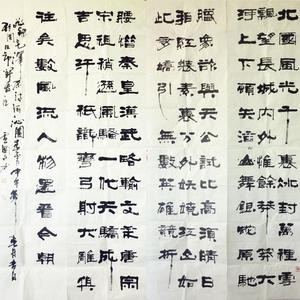 北國風光千里冰封萬裡雪
飄望長城內外惟餘莽莽大
河上下頓失滔滔山舞銀蛇原馳
蠟象欲與天公試比高須晴日
看紅裝素裹分外妖嬈江山如
此多嬌引無數英雄競折
腰惜秦皇漢武略輸文采唐宗
宋祖稍遜風騷一代天驕成
吉思汗祇識彎弓射大雕俱
往矣數風流人物還看今朝
毛澤東詞沁園春雪甲午